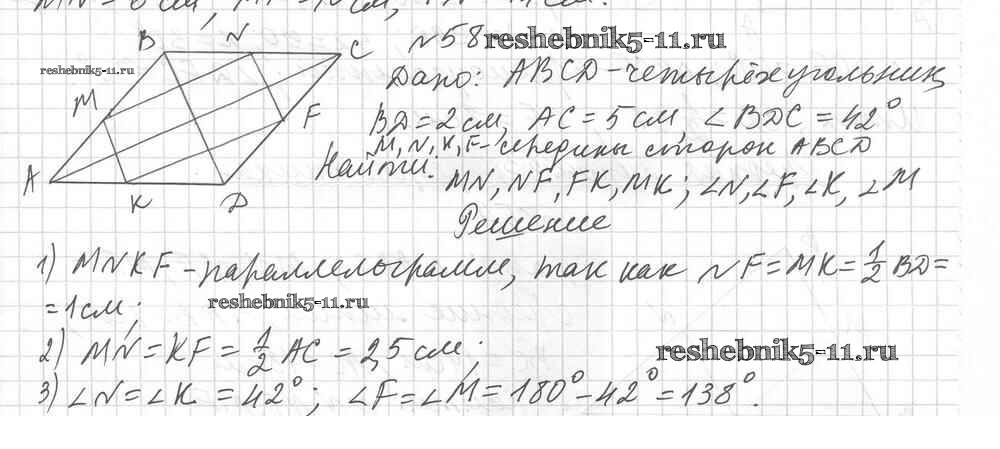 N58 reshebnik5-11.ru
B N C
reshebnik5-11.ru
Дано: ABCD-четырёхугольник
M F
BD=2см, AC=5см, ∠BDC=42°
M, N, K, F-середины сторон ABCD
A K D
Найти: MN, NF, FK, MK; ∠N, ∠F, ∠K, ∠M
Решение
1) MNKF-параллелограмм, так как NF=MK=1/2 BD=
=1см;
reshebnik5-11.ru
2) MN=KF=1/2 AC=2,5см;
reshebnik5-11.ru
3) ∠N=∠K=42°; ∠F=∠M=180°-42°=138°.